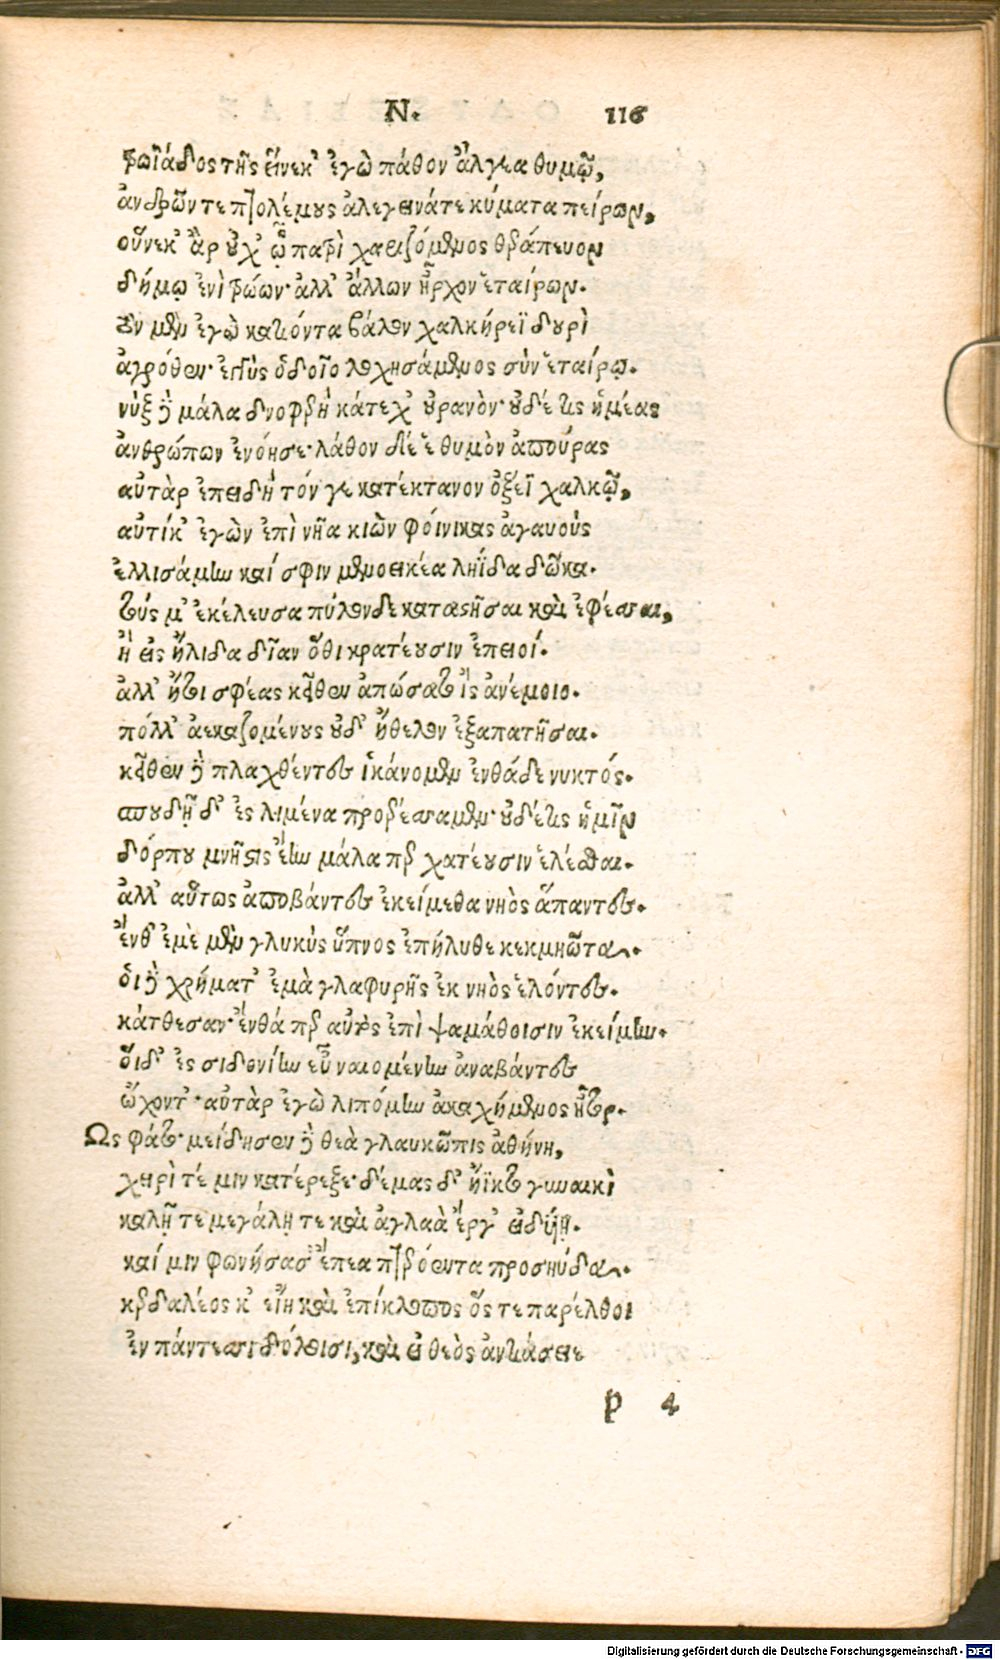 Ν. 116
τρωϊάδος τῆς εἵνεκ' ἐγὼ πάθον ἄλγεα θυμῷ,
ἀνδρῶν τε πτολέμους ἀλεγεινά τε κύματα πείρων,
οὕνεκ' ἂρ οὐχ' ᾧ πατρὶ χαριζόμενος θεράπευον
δήμῳ ἐνὶ τρώων· ἀλλ' ἄλλων ἦρχον ἑταίρων.
τὸν μὲν ἐγὼ κατιόντα βάλον χαλκήρεϊ δουρὶ
ἀγρόθεν· ἐγγὺς ὁδοῖο λοχησάμενος σὺν ἑταίρῳ.
νὺξ δὲ μάλα δνοφερὴ κάτεχ' οὐρανὸν· οὐδέ τις ἡμέας
ἀνθρώπων ἐνόησε· λάθον δέ ἑ θυμὸν ἀπούρας
αὐτὰρ ἐπειδὴ τόν γε κατέκτανον ὀξέϊ χαλκῷ,
αὐτίκ' ἐγὼν ἐπὶ νῆα κιὼν φοίνικας ἀγαυοὺς
ἐλλισάμην καί σφιν μενοεικέα ληΐδα δῶκα.
τούς μ' ἐκέλευσα πύλονδε καταστῆσαι καὶ ἐφέσσαι,
ἢ εἰς ἤλιδα δῖαν ὅθι κρατέουσιν ἐπειοί.
ἀλλ' ἤτοι σφέας κεῖθεν ἀπώσατο ἲς ἀνέμοιο.
πόλλ' ἀεκαζομένους οὐδ' ἤθελον ἐξαπατῆσαι.
κεῖθεν δὲ πλαχθέντες ἱκάνομεν ἐνθάδε νυκτός.
σπουδῇ δ' ἐς λιμένα προερέσσαμεν· οὐδέ τις ἡμῖν
δόρπου μνῆστις ἔην μάλα περ χατέουσιν ἑλέσθαι.
ἀλλ' αὕτως ἀποβάντες ἐκείμεθα νηὸς ἅπαντες.
ἔνθ' ἐμὲ μὲν γλυκὺς ὕπνος ἐπήλυθε κεκμηῶτα.
οἱ δὲ χρήματ' ἐμὰ γλαφυρῆς ἐκ νηὸς ἑλόντες.
κάτθεσαν· ἔνθά περ αὐτὸς ἐπὶ ψαμάθοισιν ἐκείμην.
οἵδ' ἐς σιδονίην εὖ ναιομένην ἀναβάντες
ᾤχοντ'· αὐτὰρ ἐγὼ λιπόμην ἀκαχήμενος ἦτορ.
Ὣς φάτο· μείδησεν δὲ θεὰ γλαυκῶπις ἀθήνη,
χειρὶ τέ μιν κατέρεξε· δέμας δ' ἤϊκτο γυναικὶ
καλῇ τε μεγάλῃ τε καὶ ἀγλαὰ ἔργ' εἰδυίῃ.
καί μιν φωνήσασ' ἔπεα πτερόεντα προσηύδα.
κερδαλέος κ' εἴη καὶ ἐπίκλοπος ὅς τε παρέλθοι
ἐν πάντεσσι δόλοισι, καὶ εἰ θεὸς ἀντιάσειε
P 4
Digitalisierung gefördert durch die Deutsche Forschungsgemeinschaft - DFG